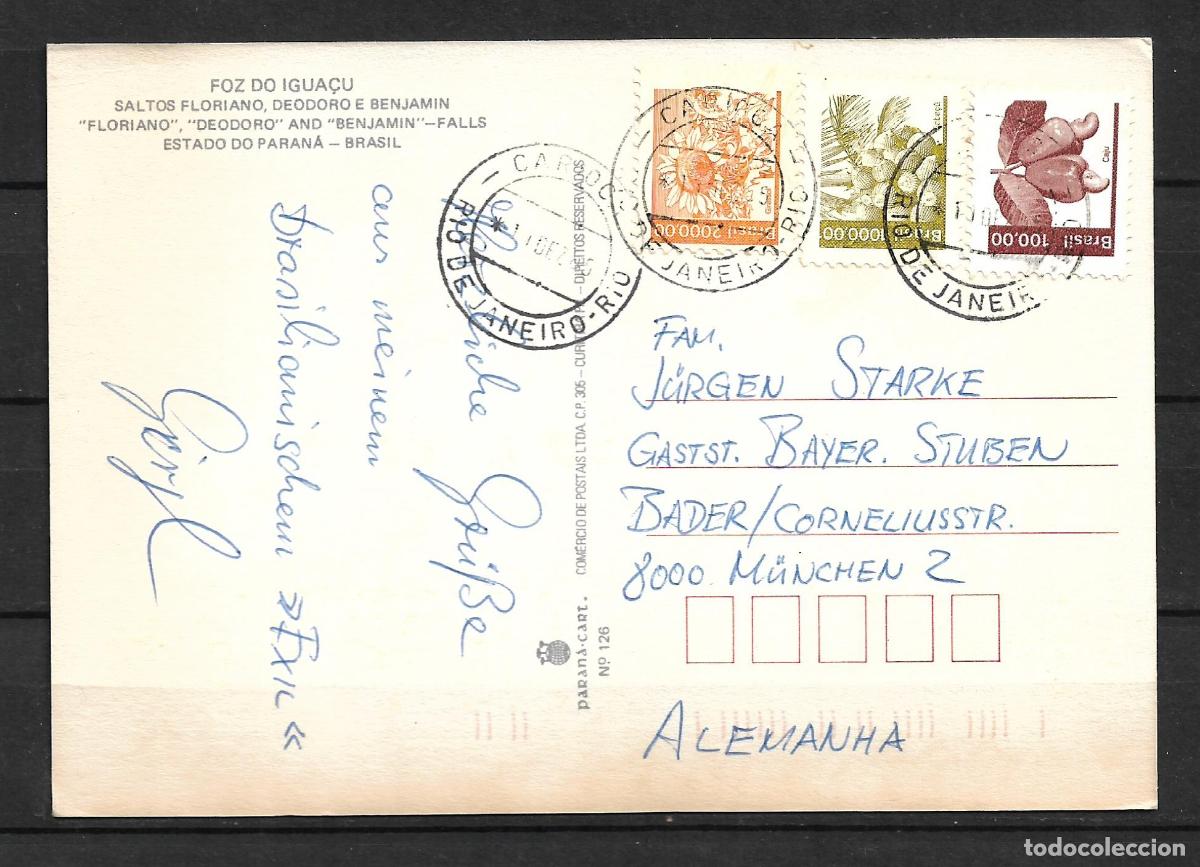 FOZ DO IGUAÇU
SALTOS FLORIANO, DEODORO E BENJAMIN
"FLORIANO", "DEODORO" AND "BENJAMIN"—FALLS
ESTADO DO PARANÁ — BRASIL
Grüße
aus meinem
brasilianischen »Exil«
COMÉRCIO DE POSTAIS LTDA. C.P. 305 — — DIREITOS RESERVADOS
paraná-cart.
Nº 126
Brasil 2000.00
Brasil 1000.00
Caju
Brasil 100.00
CARIOCA
RIO DE JANEIRO-RIO
CARIOCA
JANEIRO-RIO
RIO DE JANEIR
FAM.
JÜRGEN STARKE
GASTST. BAYER. STUBEN
BADER/CORNELIUSSTR.
8000 MÜNCHEN 2
ALEMANHA
todocoleccion